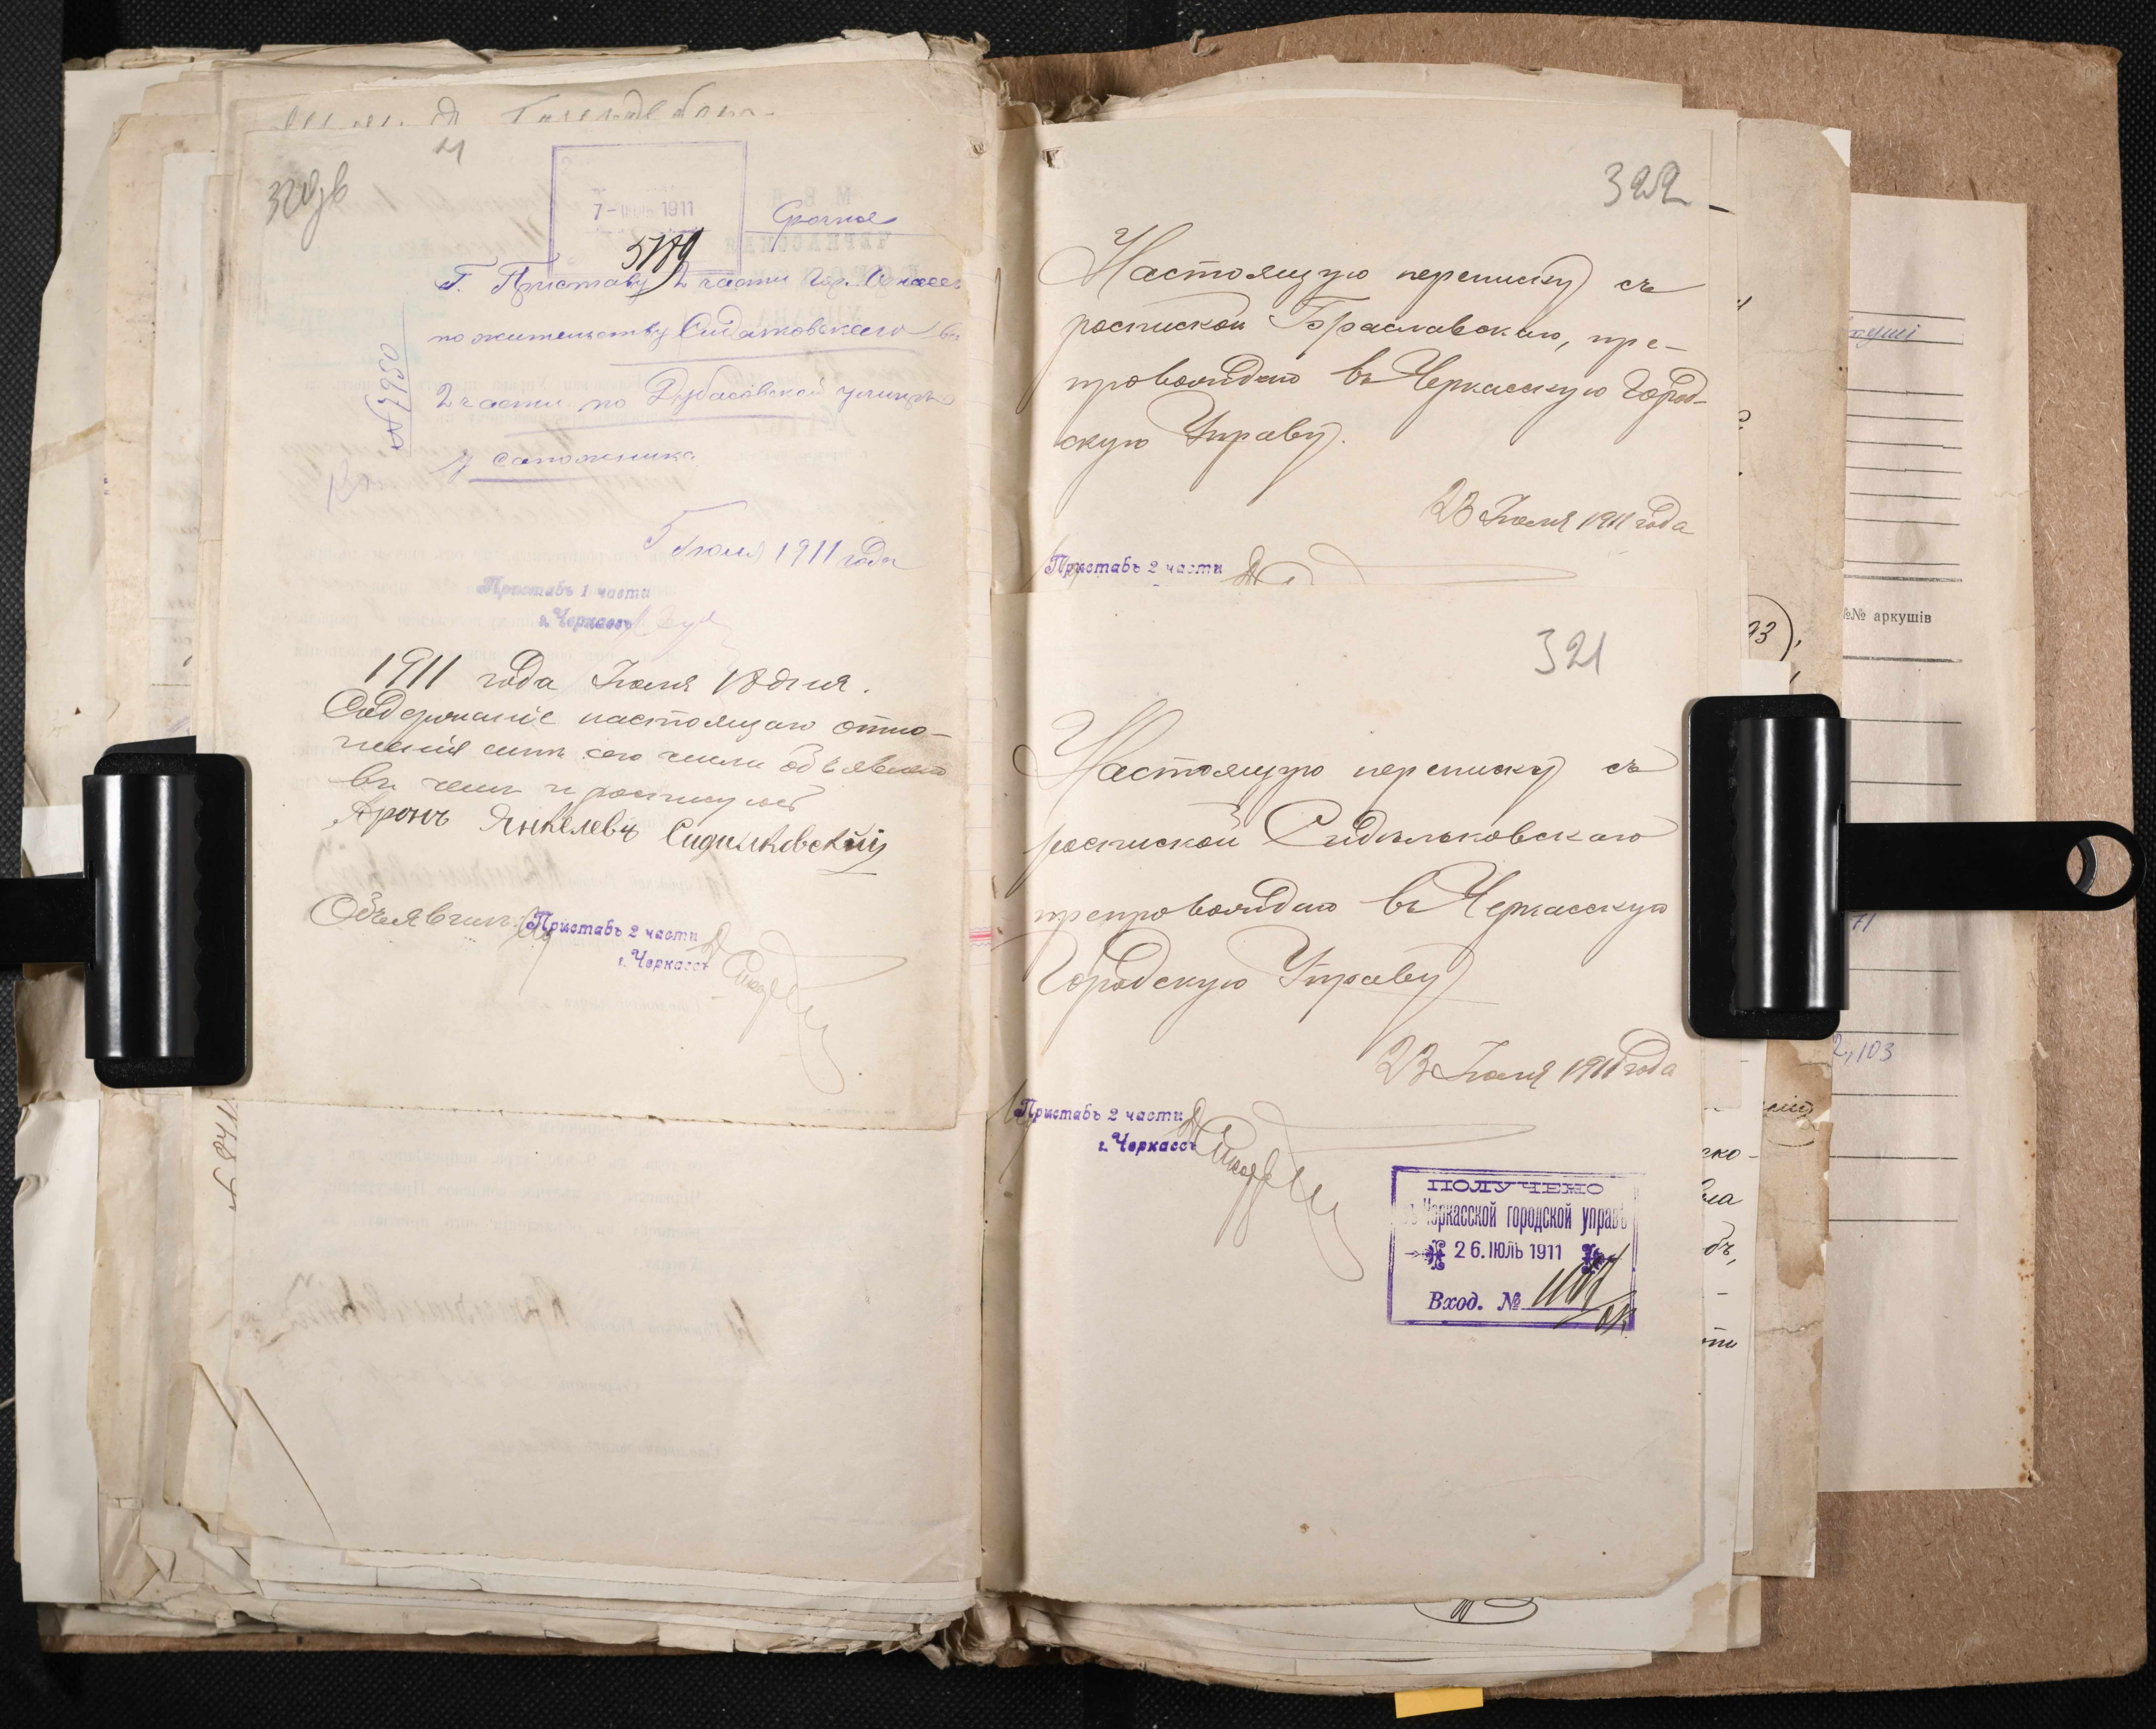 320об
7 - ИЮЛЬ 1911
5789
Срочное
Г. Приставу 2 части гор. Черкасс
по жительству Сидалковскаго во
2 части по Дубасовской улице
у сапожника
№ 7950
5 Июля 1911 года
Приставъ 1 части
г. Черкассъ
1911 года Июля 18 дня.
Содержаніе настоящаго отно-
шенія мнѣ сего числа объявлено
въ чемъ и росписуюсь
Аронъ Янкелевъ Сидилковскій
Объявилъ:
Приставъ 2 части
г. Черкассъ
322
Настоящую переписку съ
роспиской Браславскаго, пре-
провождаю въ Черкасскую Город-
скую Управу.
23 Июля 1911 года
Приставъ 2 части
321
Настоящую переписку съ
роспиской Сидельковскаго
препровождаю въ Черкасскую
Городскую Управу
23 Июля 1911 года
Приставъ 2 части
г. Черкассъ
ПОЛУЧЕНО
Черкасской городской управѣ
26. ІЮЛЬ 1911
Вход. №
№№ аркушів
93)
71
2, 103